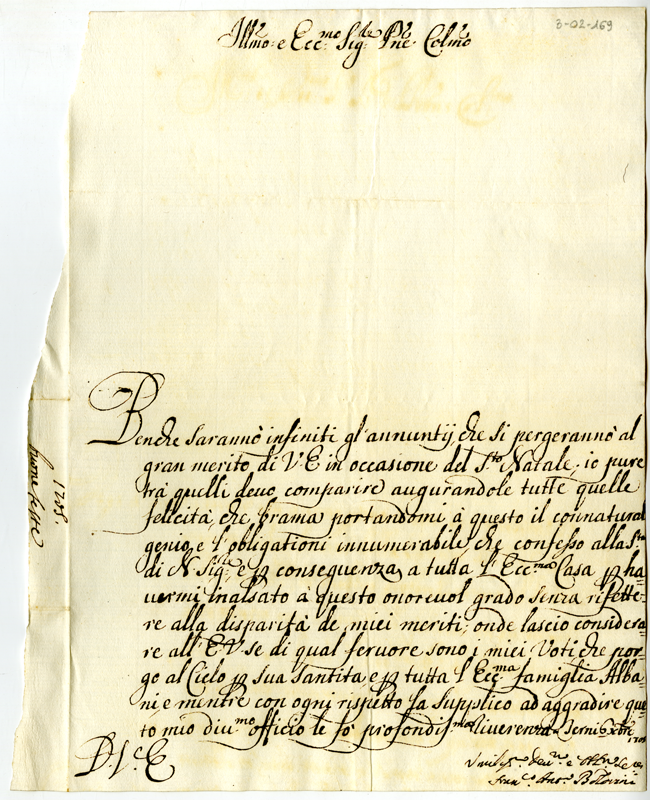 3-02-169
Illmo: e Ecc:mo Sig:re Pne: Colmo
Benche Sarannò infiniti gl'annuntij che si porgerannò al
gran merito di V E in occasione del S:to Natale; io pure
trà quelli devo comparire augurandole tutte quelle
felicità, che brama portandomi à questo il connatural
genio, e l'obligationi innumerabile, che confesso alla S:tà
di N Sig:re e p conseguenza a tutta l'Ecc:ma Casa p ha=
uermi inalsato à questo onoreuol grado senza riflette=
re alla disparità de miei meriti; onde lascio considera=
re all'E V se di qual feruore sono i miei Voti che por=
go al Cielo p sua Santità e p tutta l'Ecc:ma famiglia Alba=
ni e mentre con ogni rispetto la supplico ad aggradire que=
to mio diu:mo officio le fò profondis:ma riuerenza Terni
D. V. E
1708.
buone feste